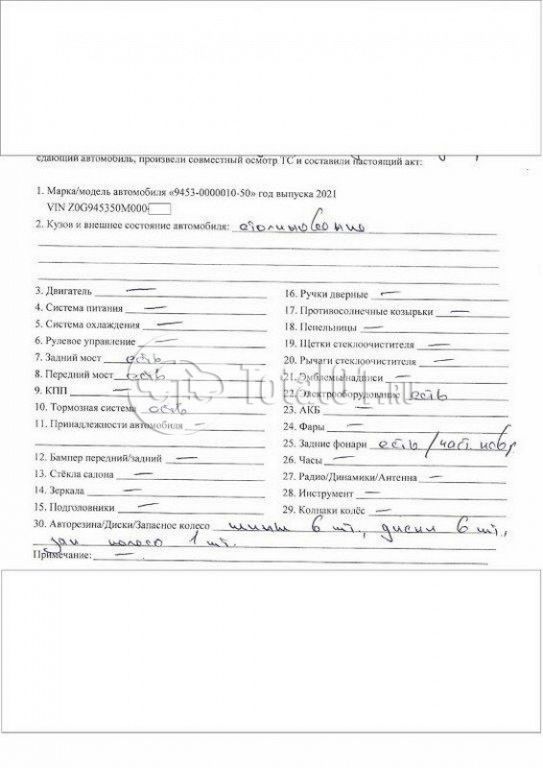 сдающий автомобиль, произвели совместный осмотр ТС и составили настоящий акт:
1. Марка/модель автомобиля «9453-0000010-50» год выпуска 2021
VIN Z0G945350M000
2. Кузов и внешнее состояние автомобиля:
3. Двигатель —
4. Система питания —
5. Система охлаждения —
6. Рулевое управление —
7. Задний мост есть
8. Передний мост есть
9. КПП —
10. Тормозная система есть
11. Принадлежности автомобиля —
12. Бампер передний/задний —
13. Стёкла салона —
14. Зеркала —
15. Подголовники —
16. Ручки дверные —
17. Противосолнечные козырьки —
18. Пепельницы —
19. Щетки стеклоочистителя —
20. Рычаги стеклоочистителя —
21. Эмблемы/надписи —
22. Электрооборудование есть
23. АКБ —
24. Фары —
25. Задние фонари есть/част. повр.
26. Часы —
27. Радио/Динамики/Антенна —
28. Инструмент —
29. Колпаки колёс —
30. Авторезина/Диски/Запасное колесо шины 6 шт., диски 6 шт.,
зап колесо 1 шт.
Примечание: —
Total01.RU